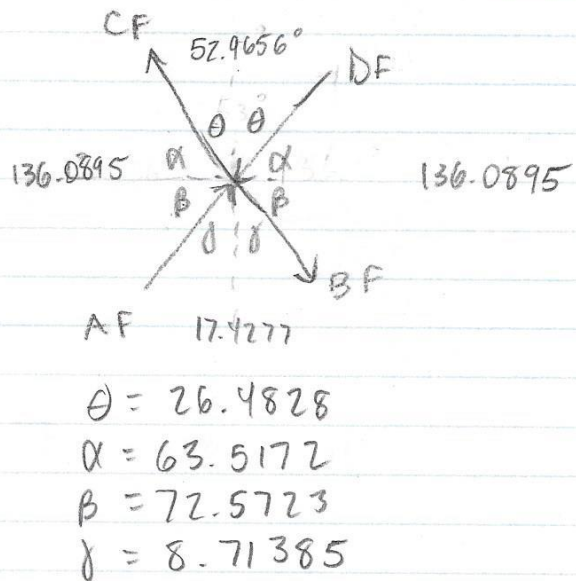 CF
52.9656°
DF
θ θ
136.0895 α α 136.0895
β β
γ γ
BF
AF 17.4277
θ = 26.4828
α = 63.5172
β = 72.5723
γ = 8.71385